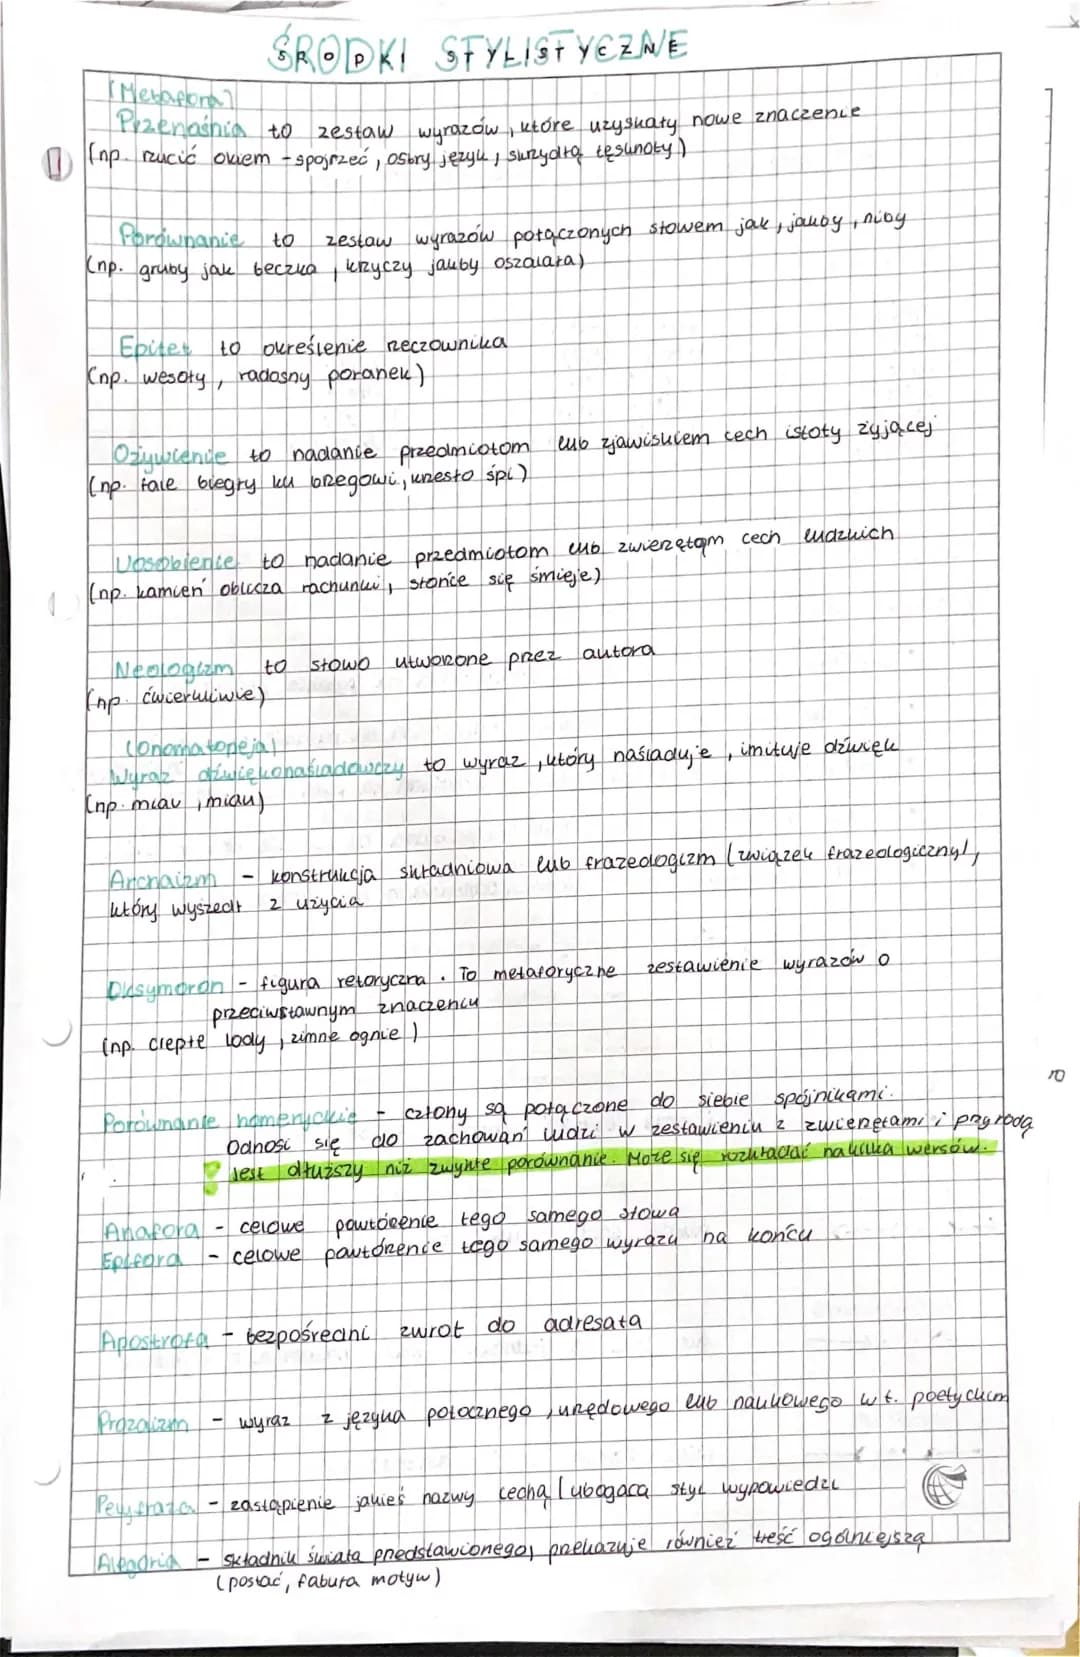 ŚRODKI STYLISTYCZNE
(Metafora)
Przenośnia to zestaw wyrazów, które uzyskały nowe znaczenie
(np. rzucić okiem - spojrzeć, ostry język, skrzydłą tęsknoty)
Porównanie to zestaw wyrazów połączonych słowem jak, jakby, niby
(np. gruby jak beczka, krzyczy jakby oszalała)
Epitet to określenie rzeczownika
(np. wesoły, radosny poranek)
Ożywienie to nadanie przedmiotom lub zjawiskiem cech istoty żyjącej
(np. fale biegły ku brzegowi, krzesło śpi)
Uosobienie to nadanie przedmiotom lub zwierzętom cech ludzkich
(np. kamień oblicza rachunki, słońce się śmieje)
Neologizm to słowo utworzone przez autora
(np. ćwierkliwie)
(Onomatopeja)
Wyraz dźwiękonaśladowczy to wyraz, który naśladuje, imituje dźwięk
(np. miau, miau)
Archaizm - konstrukcja składniowa lub frazeologizm (związek frazeologiczny),
który wyszedł z użycia
Oksymoron - figura retoryczna. To metaforyczne zestawienie wyrazów o
przeciwstawnym znaczeniu
(np. ciepłe lody, zimne ognie)
Porównanie homeryckie - człony są połączone do siebie spójnikami.
Odnosi się do zachowań ludzi w zestawieniu z zwierzętami i przyrodą
Jest dłuższy niż zwykłe porównanie. Może się rozkładać na kilka wersów.
Anafora - celowe powtórzenie tego samego słowa
Epifora - celowe powtórzenie tego samego wyrazu na końcu
Apostrofa - bezpośredni zwrot do adresata
Prozaizm - wyraz z języka potocznego, urzędowego lub naukowego w t. poetyckim
Peryfraza - zastąpienie jakieś nazwy cechą (ubogaca styl wypowiedzi
Alegoria - składnik świata przedstawionego, przekazuje również treść ogólniejszą
(postać, fabuła motyw)